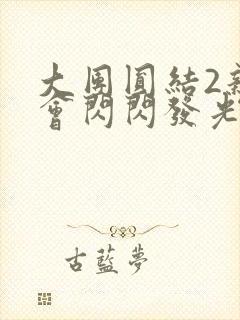 大團圓結2
會閃閃發光
古藍夢